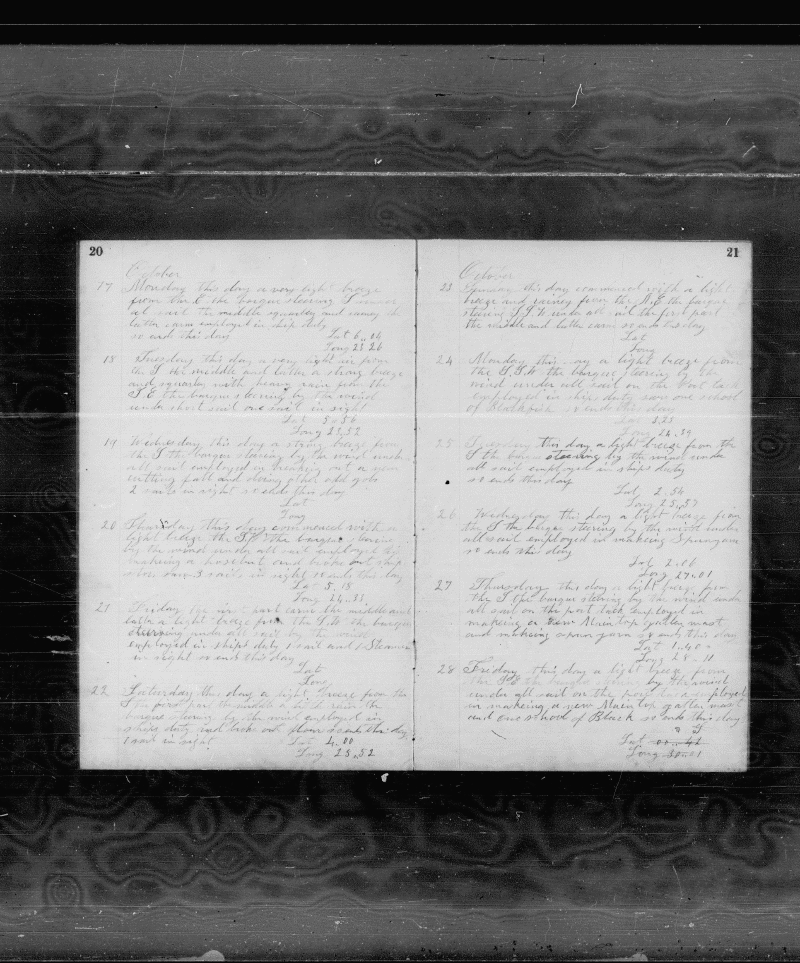 20
October
17 Monday this day a very light breeze
from the E the barque steering S under
all sail the middle squarley and rainey the
latter carm employed in ship duty
so ends this day Lat 6,,16
Long 23 26
18 Tuesday this day a very light air from
the S the middle and latter a strong breeze
and squarley with heavy rain from the
S E the barque steering by the wind
under short sail one sail in sight
Lat 5,,56
Long 23,32
19 Wednesday this day a strong breeze from
the S the barque steering by the wind under
all sail employed in breaking out a new
cutting fall and doing other odd jobs
2 sails in sight so ends this day
Lat
Long
20 Thursday this day commenced with a
light breeze the SW the barque steering
by the wind under all sail employed in
makeing a and broke out ship
3 sails in sight so ends this day
Lat 5,15
Long 24,33
21 Friday the first part carm the middle and
latter a light breeze from the S.W. the barque
steering under all sail by the wind
employed in ships duty 1 sail and 1 Steamer
in sight so ends this day
Lat
Long
22 Saturday this day a light breeze from the
S the first part the middle a little rain the
barque steering by the wind employed in
ships duty and broke out flour so ends this day
1 sail in sight Lat 4.00
Long 25,52
21
October
23 Sunday this day commenced with a light
breeze and rainey from the N.E. the barque
steering S.S.W. under all sail the first part
the middle and latter carm so ends this day
Lat
Long
24 Monday this day a light breeze from
the S.S.W the barque steering by the
wind under all sail on the Port tack
employed in ships duty saw one school
of Blackfish so ends this day
Lat 3,23
Long 24,39
25 Tuesday this day a light breeze from the
S the barque steering by the wind under
all sail employed in ships duty
so ends this day
Lat 2.54
Long 25,57
26 Wednesday this day a light breeze from
the S the barque steering by the wind under
all sail employed in makeing Spunyarn
so ends this day
Lat 2.06
Long 27.01
27 Thursday this day a light breeze from
the S the barque steering by the wind under
all sail on the port tack employed in
makeing a new Main top gallen mast
and makeing spun yarn so ends this day
Lat 1.40
Long 28-11
28 Friday this day a light breeze from
the S.E the barque steering by the wind
under all sail on the port tack employed
in makeing a new Main top gallen mast
and one school of Black so ends this day
Lat 01.42
Long 30.01